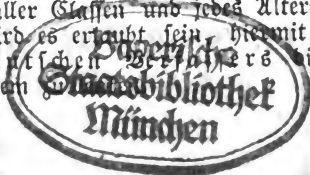 aller Classen und jedes Alter
ird es erlaubt sein, hiermit
utschen Verfassers bi
em
Bayerische
Staatsbibliothek
München